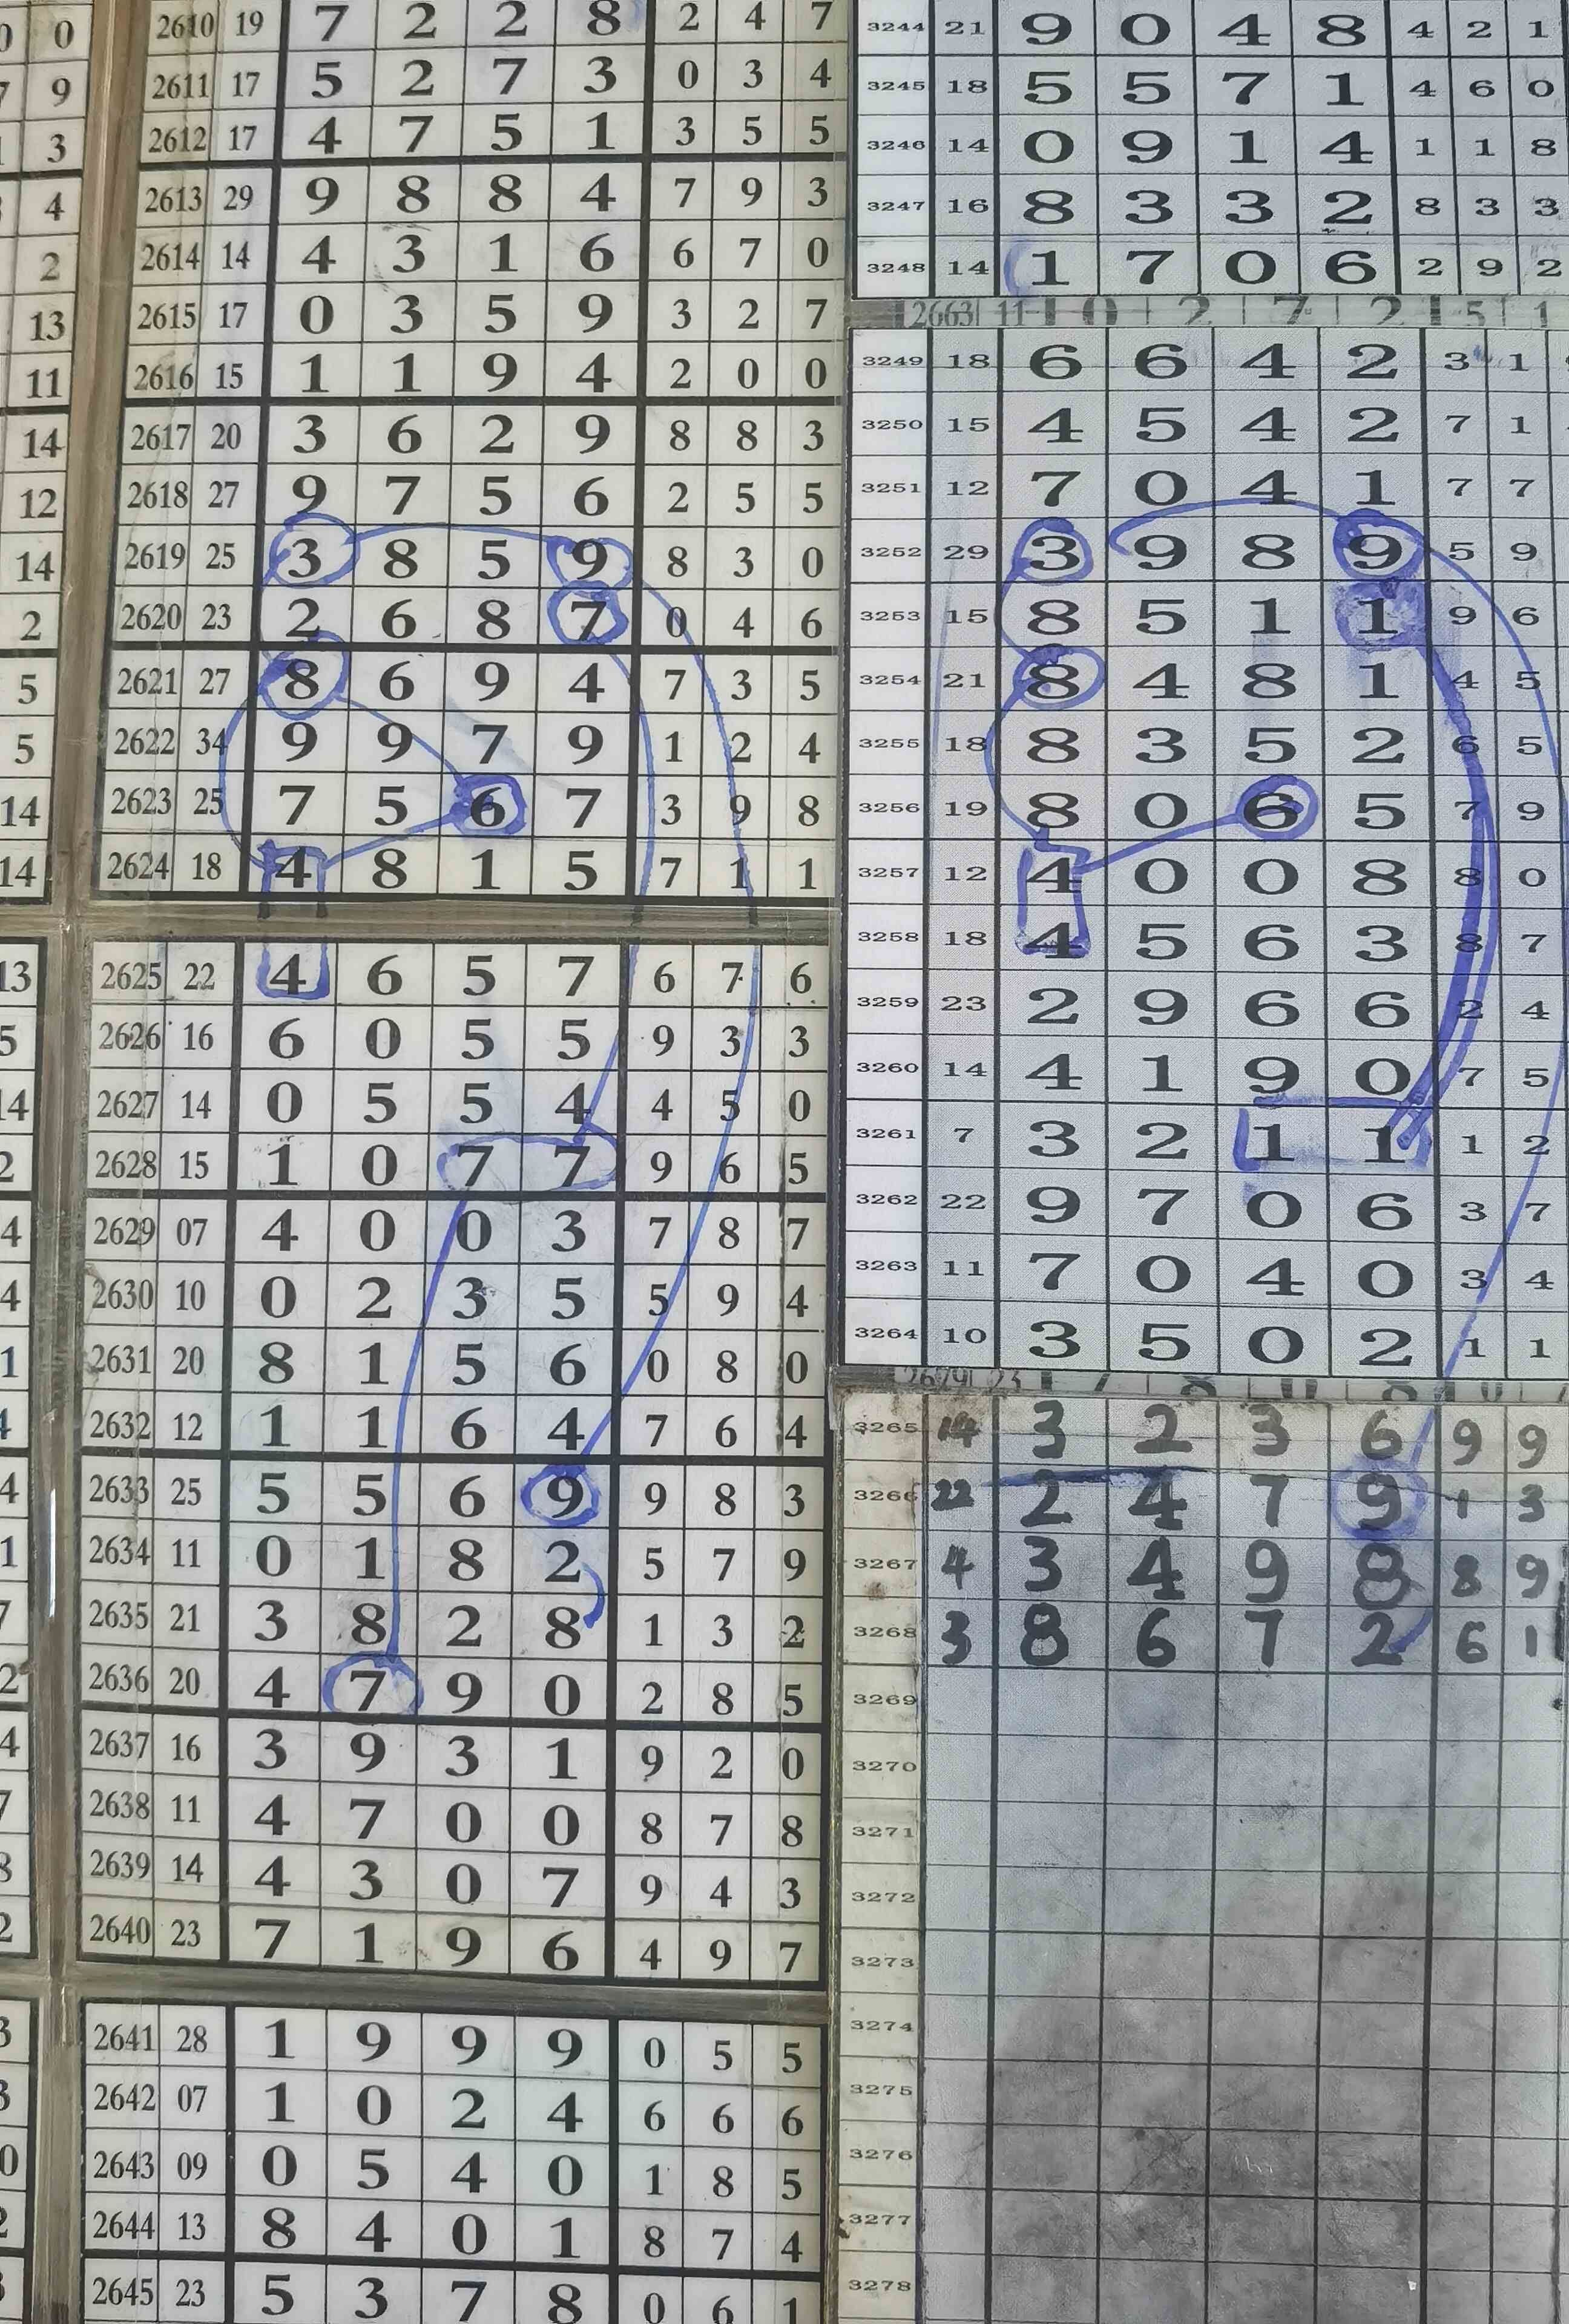 0 2610 19 7 2 2 8 2 4 7
9 2611 17 5 2 7 3 0 3 4
3 2612 17 4 7 5 1 3 5 5
4 2613 29 9 8 8 4 7 9 3
2 2614 14 4 3 1 6 6 7 0
13 2615 17 0 3 5 9 3 2 7
11 2616 15 1 1 9 4 2 0 0
14 2617 20 3 6 2 9 8 8 3
12 2618 27 9 7 5 6 2 5 5
14 2619 25 3 8 5 9 8 3 0
2 2620 23 2 6 8 7 0 4 6
5 2621 27 8 6 9 4 7 3 5
5 2622 34 9 9 7 9 1 2 4
14 2623 25 7 5 6 7 3 9 8
14 2624 18 4 8 1 5 7 1 1
13 2625 22 4 6 5 7 6 7 6
5 2626 16 6 0 5 5 9 3 3
14 2627 14 0 5 5 4 4 5 0
2 2628 15 1 0 7 7 9 6 5
4 2629 07 4 0 0 3 7 8 7
4 2630 10 0 2 3 5 5 9 4
1 2631 20 8 1 5 6 0 8 0
4 2632 12 1 1 6 4 7 6 4
4 2633 25 5 5 6 9 9 8 3
1 2634 11 0 1 8 2 5 7 9
7 2635 21 3 8 2 8 1 3 2
2 2636 20 4 7 9 0 2 8 5
4 2637 16 3 9 3 1 9 2 0
7 2638 11 4 7 0 0 8 7 8
8 2639 14 4 3 0 7 9 4 3
2 2640 23 7 1 9 6 4 9 7
3 2641 28 1 9 9 9 0 5 5
3 2642 07 1 0 2 4 6 6 6
0 2643 09 0 5 4 0 1 8 5
2 2644 13 8 4 0 1 8 7 4
2645 23 5 3 7 8 0 6 1
3244 21 9 0 4 8 4 2 1
3245 18 5 5 7 1 4 6 0
3246 14 0 9 1 4 1 1 8
3247 16 8 3 3 2 8 3 3
3248 14 1 7 0 6 2 9 2
2663 11 0 2 7 2 5 1
3249 18 6 6 4 2 3 1
3250 15 4 5 4 2 7 1
3251 12 7 0 4 1 7 7
3252 29 3 9 8 9 5 9
3253 15 8 5 1 1 9 6
3254 21 8 4 8 1 4 5
3255 18 8 3 5 2 6 5
3256 19 8 0 6 5 7 9
3257 12 4 0 0 8 8 0
3258 18 4 5 6 3 8 7
3259 23 2 9 6 6 2 4
3260 14 4 1 9 0 7 5
3261 7 3 2 1 1 1 2
3262 22 9 7 0 6 3 7
3263 11 7 0 4 0 3 4
3264 10 3 5 0 2 1 1
3265 14 3 2 3 6 9 9
3266 22 2 4 7 9 1 3
3267 4 3 4 9 8 8 9
3268 3 8 6 7 2 6 1
3269
3270
3271
3272
3273
3274
3275
3276
3277
3278